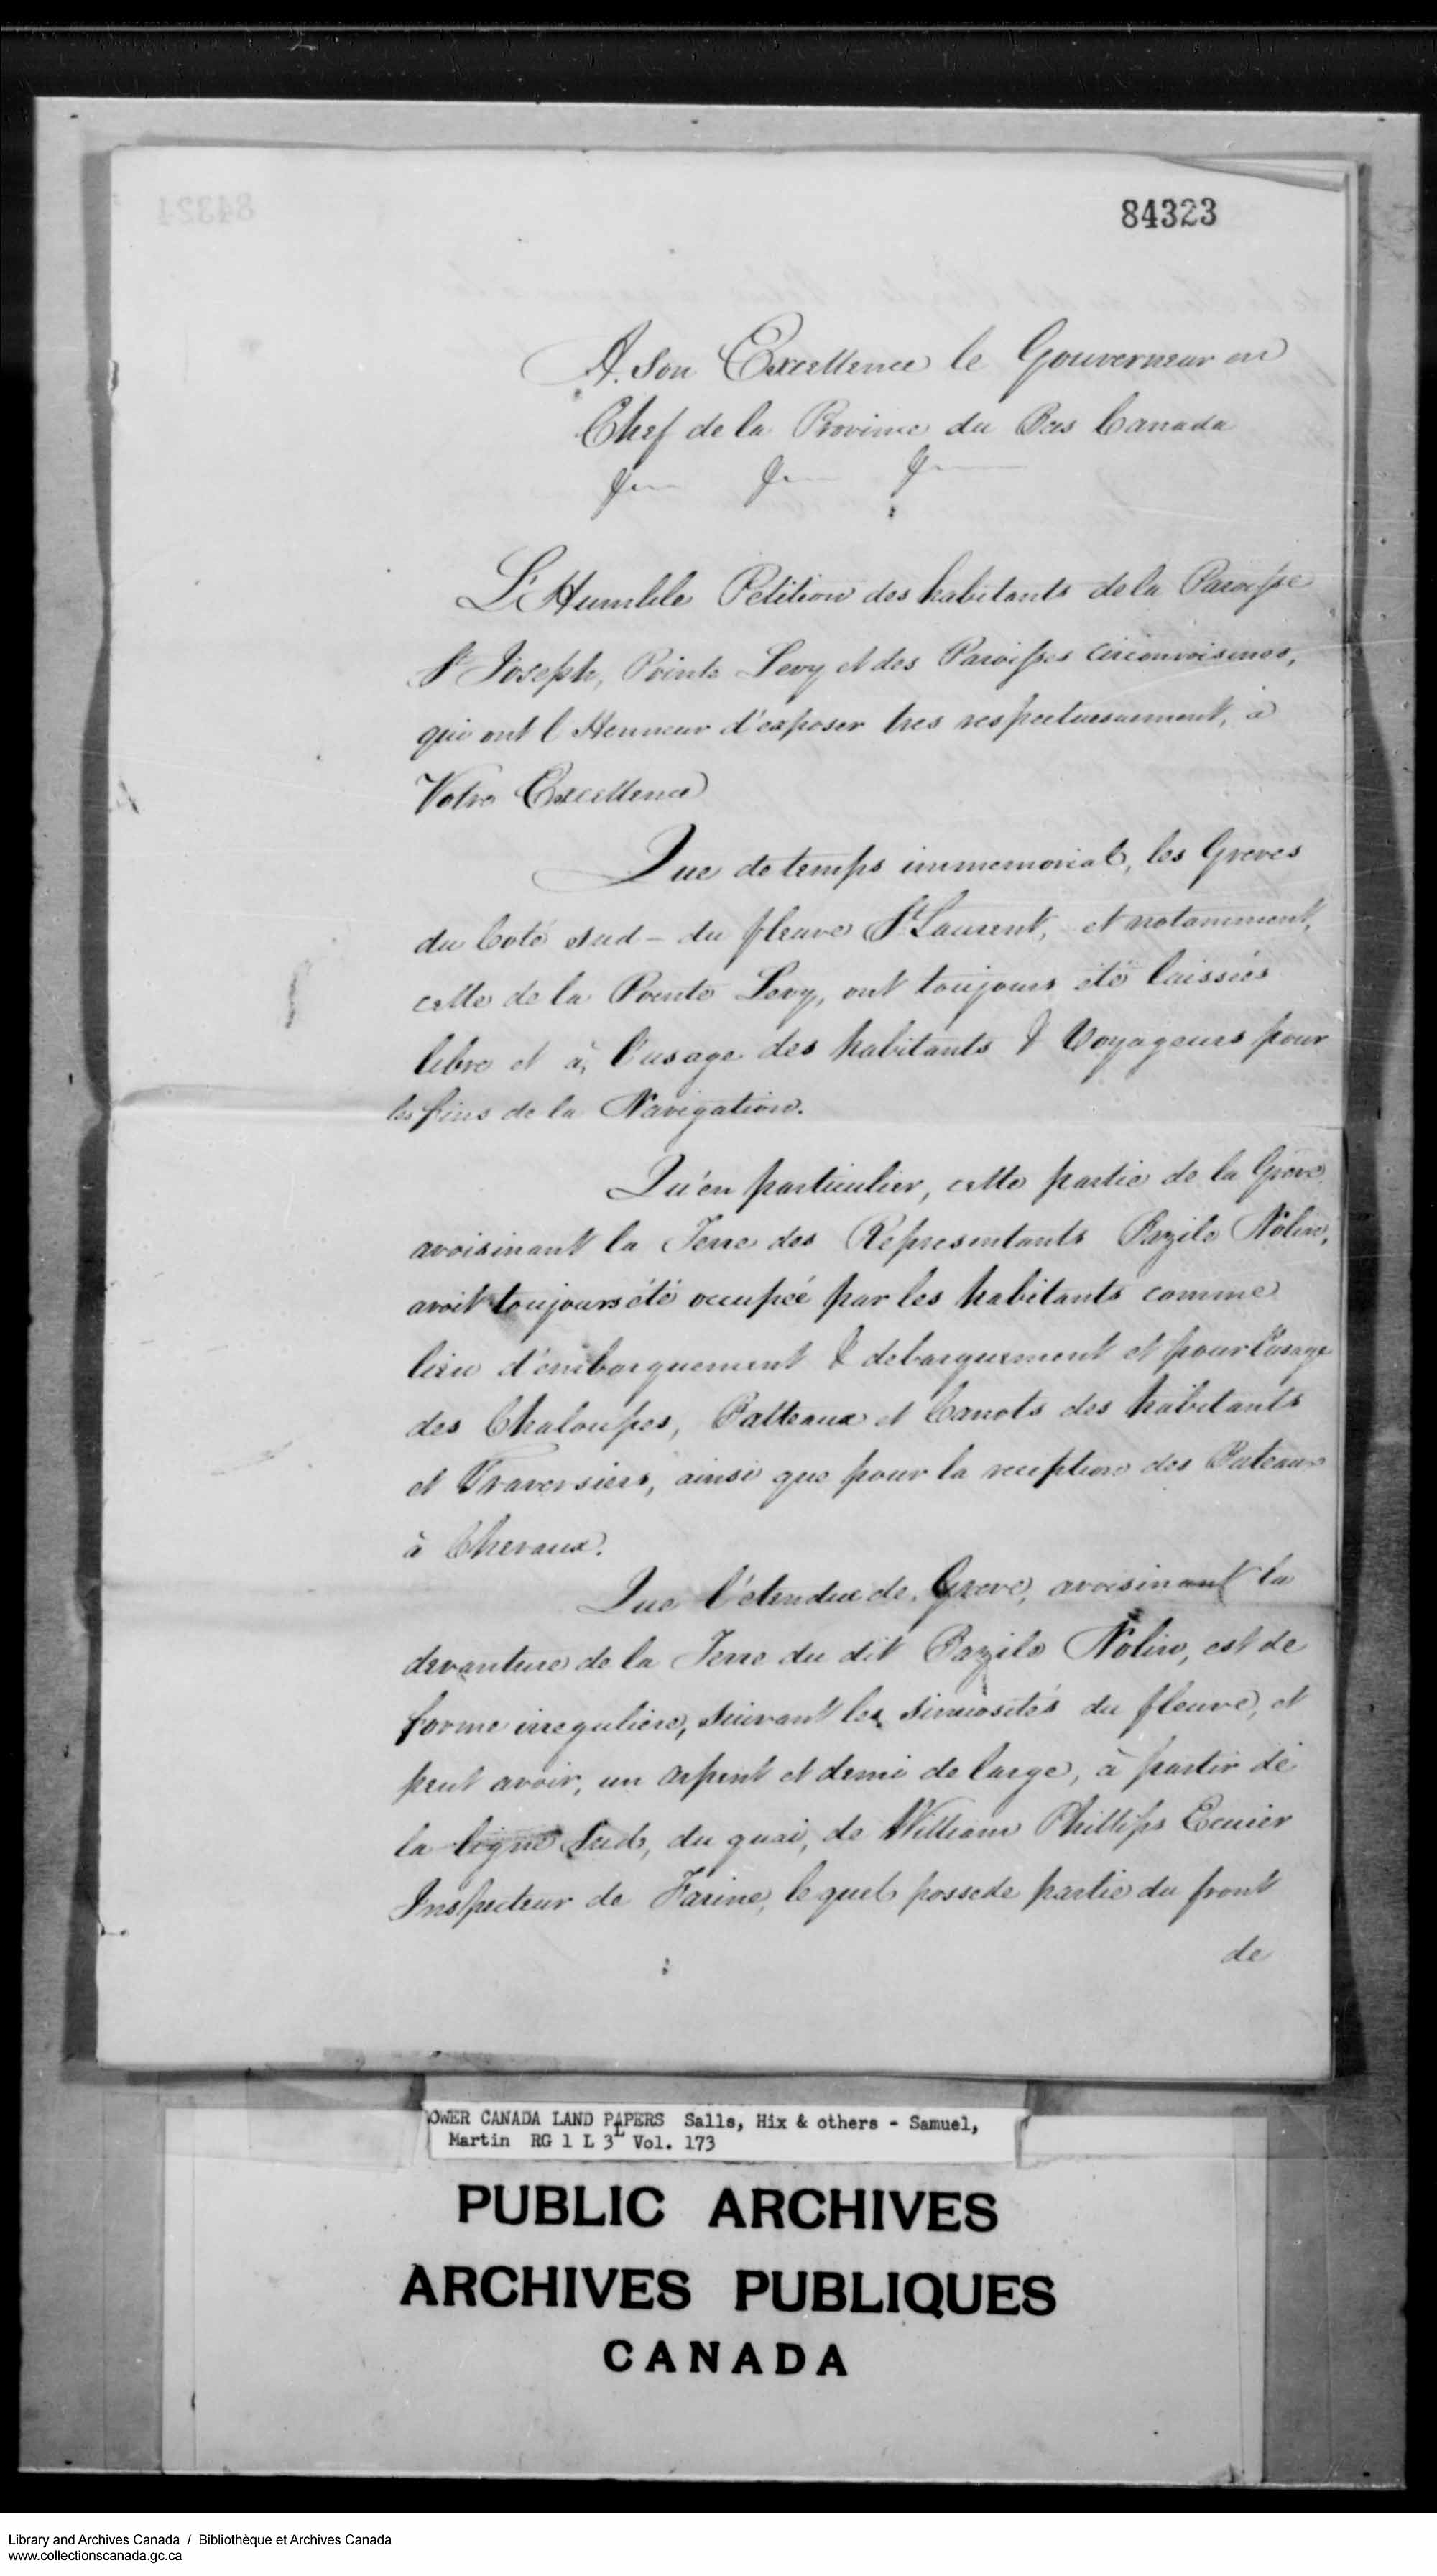 84323
A. Son Excellence le Gouverneur en
Chef de la Province du Bas Canada
L'Humble Petition des habitants de la Paroisse
St Joseph, Pointe Levy et des Paroisses circonvoisines,
qui ont l'Honneur d'exposer tres respectueusement, à
Votre Excellence
Que de temps immemorial, les Greves
du Coté sud - du fleuve St Laurent, et notamment,
celle de la Pointe Levy, ont toujours été laissées
libre et à, l'usage des habitants & Voyageurs pour
les fins de la Navigation.
Qu'en particulier, cette partie de la Greve
avoisinant la Terre des Representants Bazile Nolin,
avoit toujours été occupée par les habitants comme
lieu d'embarquement & debarquement et pour l'usage
des Chaloupes, Batteaux et Canots des habitants
et Traversiers, ainsi que pour la reception des Bateaux
à Chevaux.
Que l'étendue de Greve, avoisinant la
devanture de la Terre du dit Bazile Nolin, est de
forme irreguliere, suivant les sinuosités du fleuve, et
peut avoir, un arpent et demi de large, à partir de
la ligne Sud, du quai, de William Phillips Ecuier
Inspecteur de Farine, lequel possede partie du front
de
OWER CANADA LAND PAPERS Salls, Hix & others - Samuel,
Martin RG 1 L 3L Vol. 173
PUBLIC ARCHIVES
ARCHIVES PUBLIQUES
CANADA
Library and Archives Canada / Bibliothèque et Archives Canada
www.collectionscanada.gc.ca